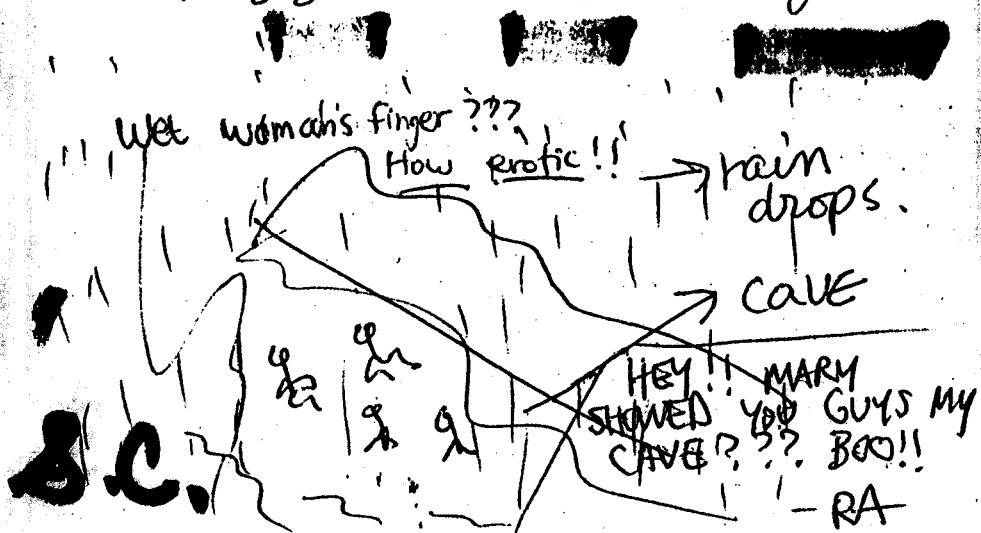 Wet woman's finger ???
How erotic!!
rain
drops.
CAVE
HEY!! MARY
SHOWED YOU GUYS MY
CAVE??? BOO!!
- RA -
S.C.